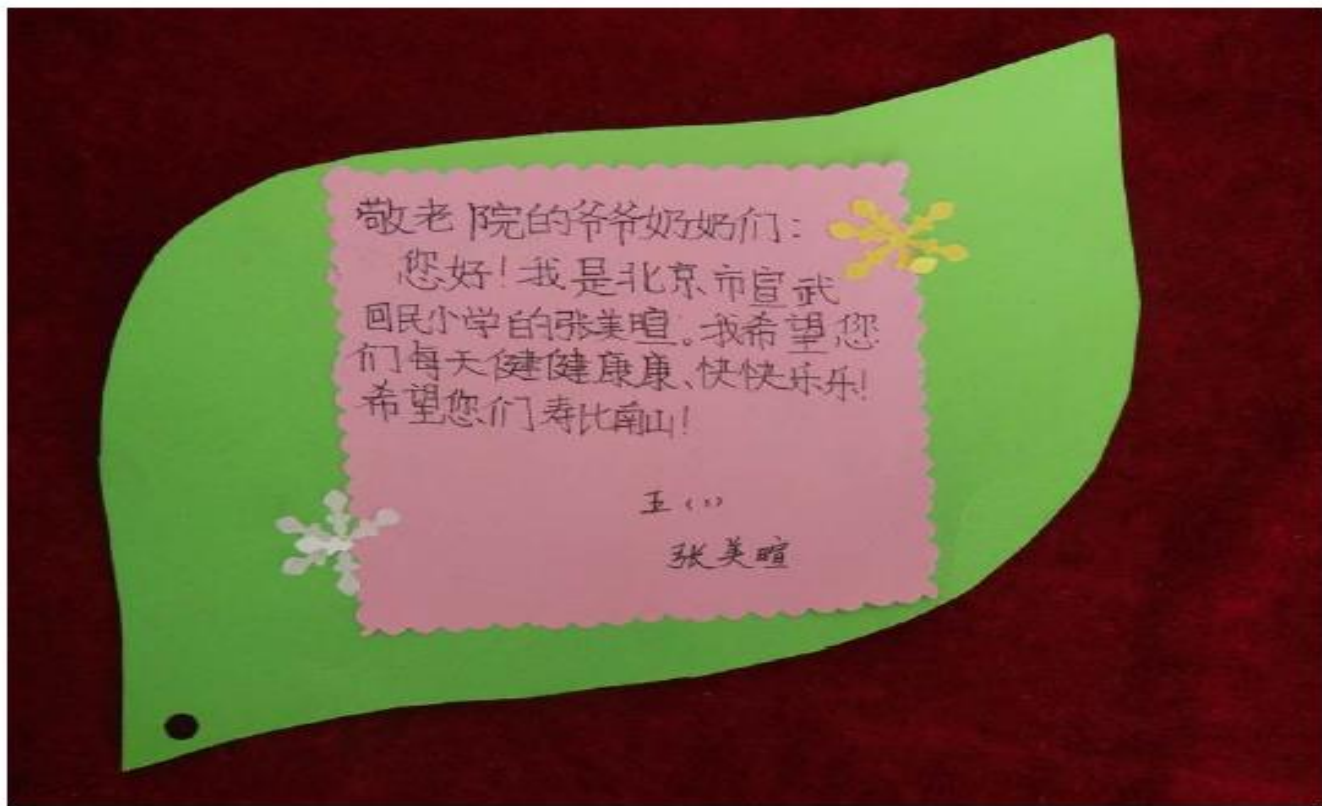 敬老院的爷爷奶奶们：
您好！我是北京市宣武
回民小学的张美暄。我希望您
们每天健健康康、快快乐乐！
希望您们寿比南山！
五
张美暄